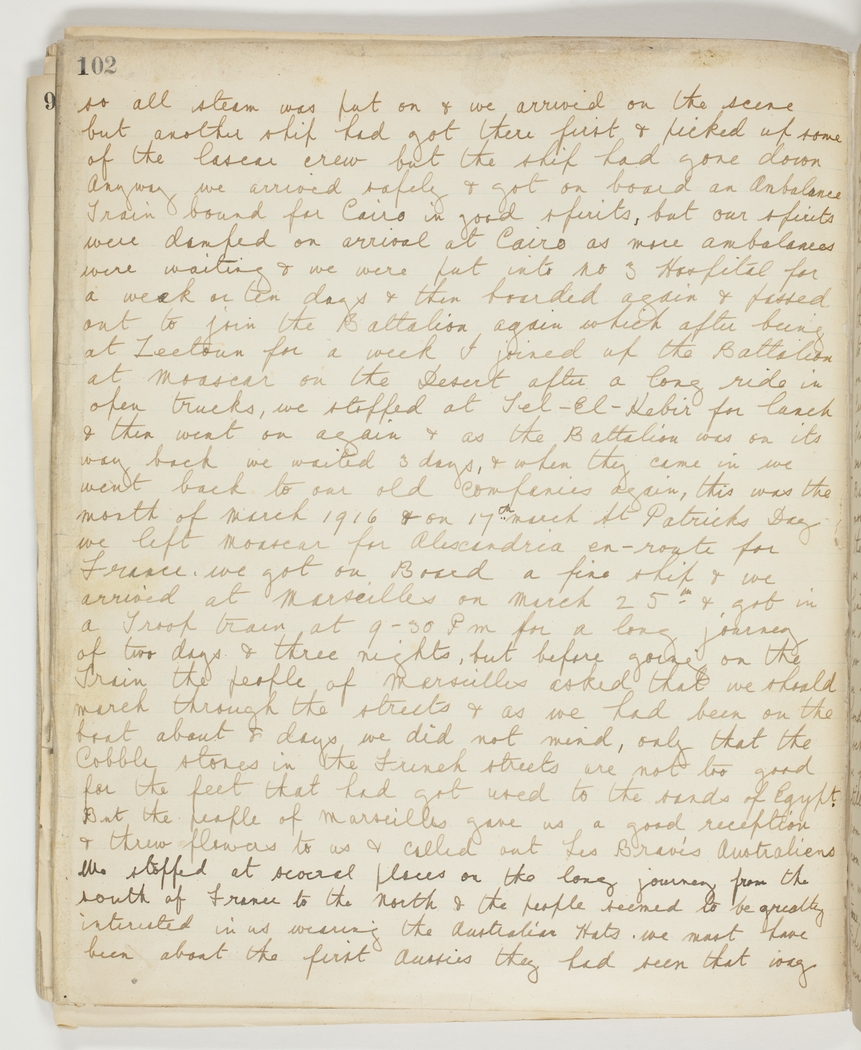 102
9
so all steam was put on & we arrived on the scene
but another ship had got there first & picked up some
of the lascar crew but the ship had gone down
Anyway we arrived safely & got on board an Anbalance
Train bound for Cairo in good spirits, but our spirits
were damped on arrival at Cairo as more ambalances
were waiting & we were put into No 3 Hospital for
a week or ten days & then boarded again & passed
out to join the Battalion again which after being
at Zeetoun for a week I joined up the Battalion
at Moascar on the Desert after a long ride in
open trucks, we stopped at Tel-El-Kebir for lunch
& then went on again & as the Battalion was on its
way back we waited 3 days, & when they came in we
went back to our old companies again, this was the
month of March 1916 & on 17th March St Patricks Day
we left Moascar for Alexandria en-route for
France. we got on Board a fine ship & we
arrived at Marseilles on March 25th & got in
a Troop train at 9-30 Pm for a long journey
of two days & three nights, but before going on the
Train the people of Marseilles asked that we should
march through the streets & as we had been on the
boat about 8 days we did not mind, only that the
Cobble stones in the French streets are not too good
for the feet that had got used to the sands of Egypt.
But the people of Marseilles gave us a good reception
& threw flowers to us & called out Les Bravis Australiens
We stopped at several places on the long journey from the
south of France to the North & the people seemed to be greatly
interested in us wearing the Australian Hats. we must have
been about the first Aussies they had seen that way